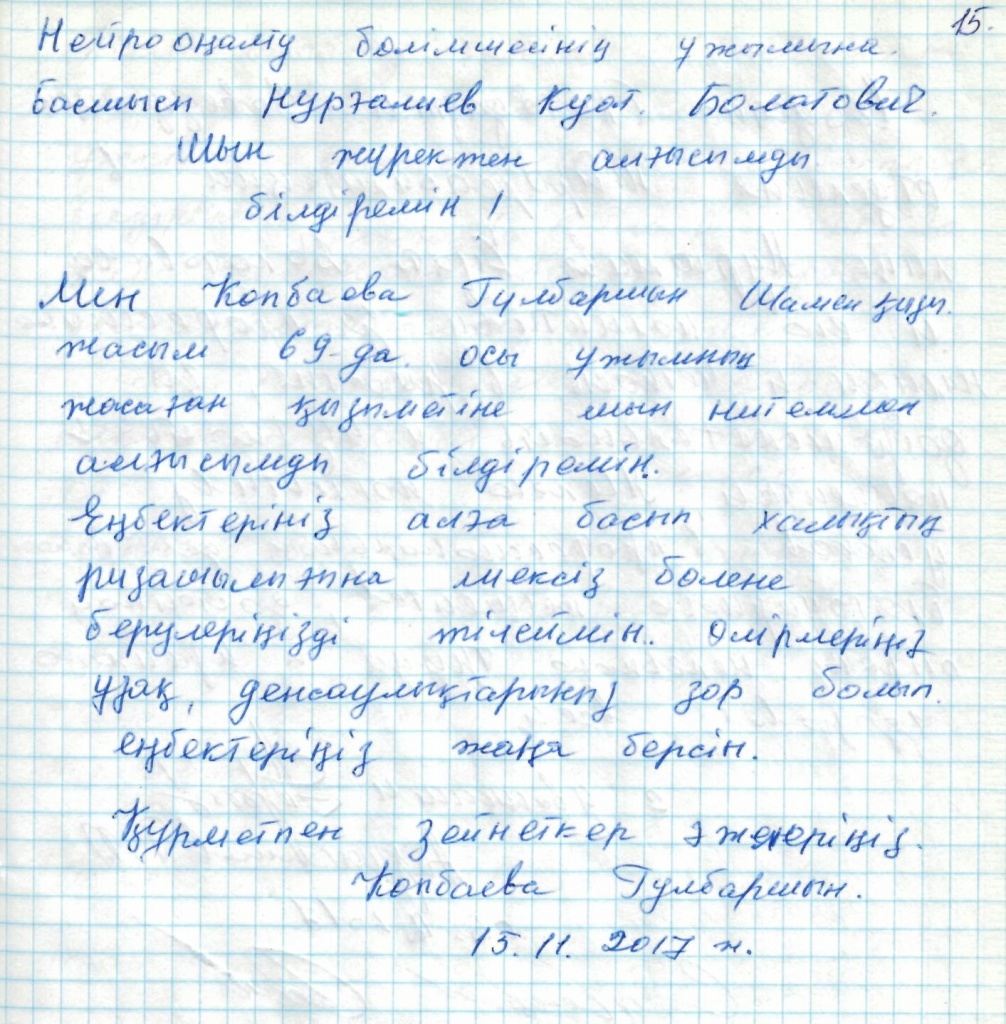 15.
Нейрооңалту бөлімшесінің ұжымына.
басшысы Нурғалиев Куат. Болатович.
Шын жүректен алғысымды
білдіремін !
Мен Копбаева Гулбаршын Шамен қызы.
жасым 69-да. осы ұжымның
жасаған қызметіне шын ниетіммен
алғысымды білдіремін.
Еңбектеріңіз алға басып халықтың
ризашылығына шексіз бөлене
берулеріңізді тілеймін. Өмірлеріңіз
ұзақ, денсаулықтарыңыз зор болып.
еңбектеріңіз жана берсін.
Құрметпен Зейнеткер әжелеріңіз.
Копбаева Гулбаршын.
15. 11. 2017 ж.